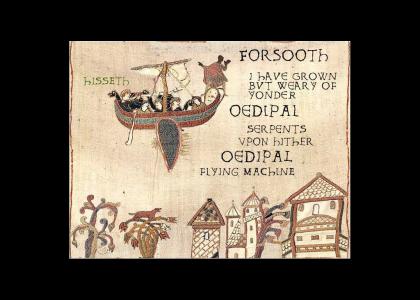 FORSOOTH
HISSETH
I HAVE GROWN
BUT WEARY OF
YONDER
OEDIPAL
SERPENTS
VPON HITHER
OEDIPAL
FLYING MACHINE